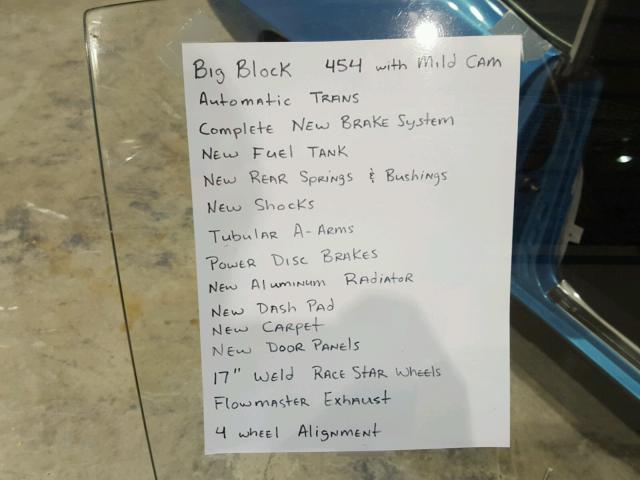 Big Block 454 with Mild Cam
Automatic Trans
Complete New Brake System
New Fuel Tank
New Rear Springs & Bushings
New Shocks
Tubular A-Arms
Power Disc Brakes
New Aluminum Radiator
New Dash Pad
New Carpet
New Door Panels
17" Weld Race Star Wheels
Flowmaster Exhaust
4 wheel Alignment